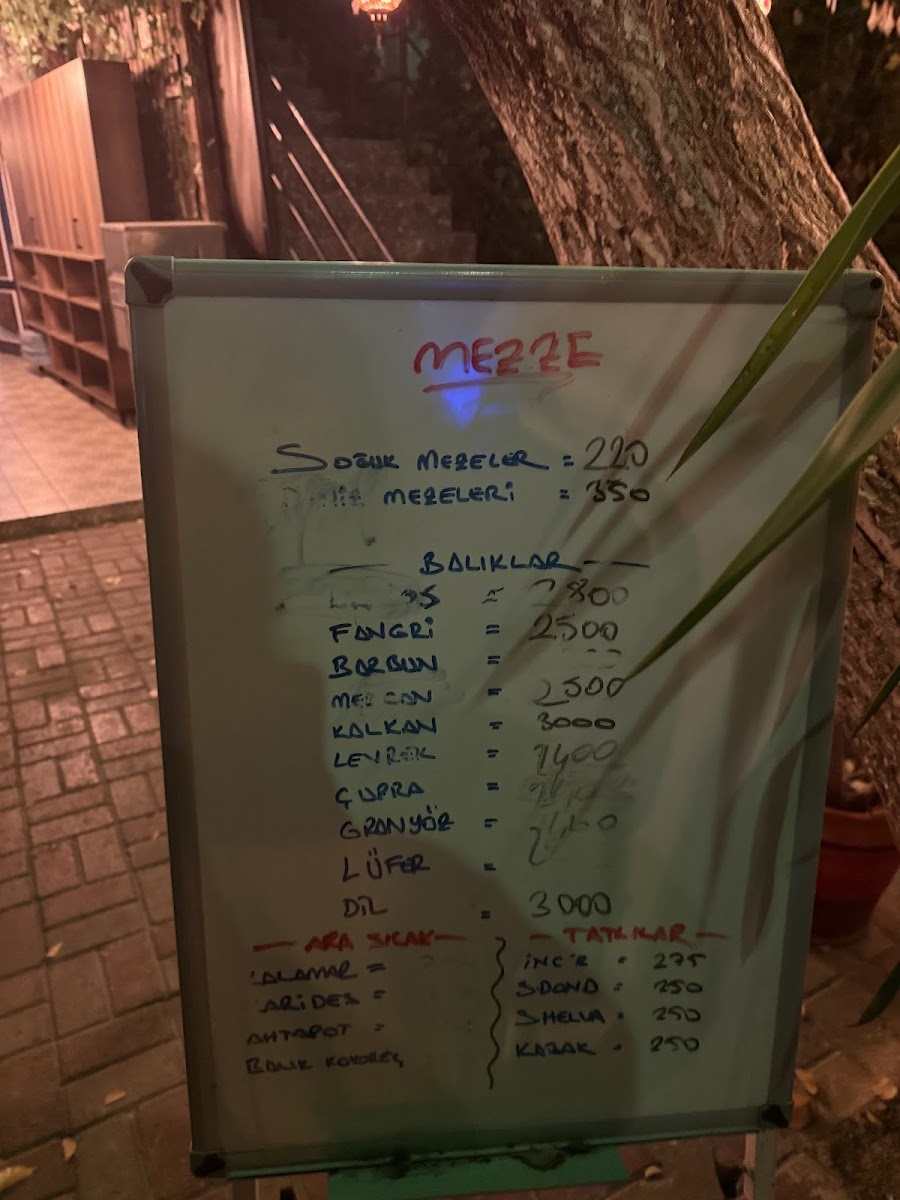 MEZZE
SOĞUK MEZELER = 220
MEZELERİ = 350
BALIKLAR
= 2800
FANGRİ = 2500
BARBUN =
MERCAN = 2500
KALKAN = 3000
LEVREK = 1400
ÇUPRA =
GRANYÖZ =
LÜFER =
DİL = 3000
ARA SICAK
ALAMAR =
ARİDES =
AHTAPOT =
BALIK KOKOREÇ
TATLILAR
İNCİR = 275
SDOND = 250
SHELVA = 250
KABAK = 250